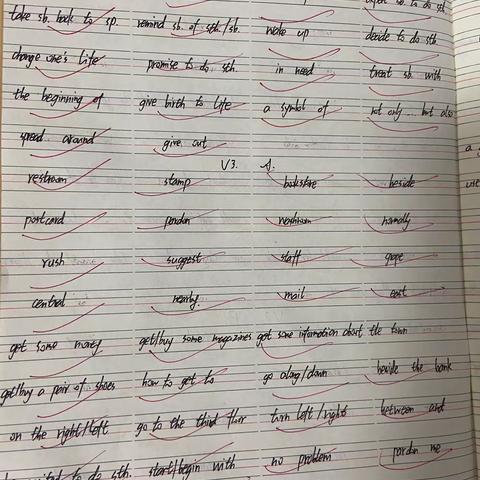 take sb. back to sp. remind sb. of sth./sb. wake up decide to do sth.
change one's life promise to do sth. in need treat sb. with
the beginning of give birth to life a symbol of not only ... but also
spread around give out
V3. A.
restroom stamp bookstore beside
postcard pardon washroom normally
rush suggest staff grape
central nearby mail east
get some money get/buy some magazines get some information about the town
get/buy a pair of shoes how to get to go along/down beside the bank
on the right/left go to the third floor turn left/right between and
to do sth. start/begin with no problem pardon me